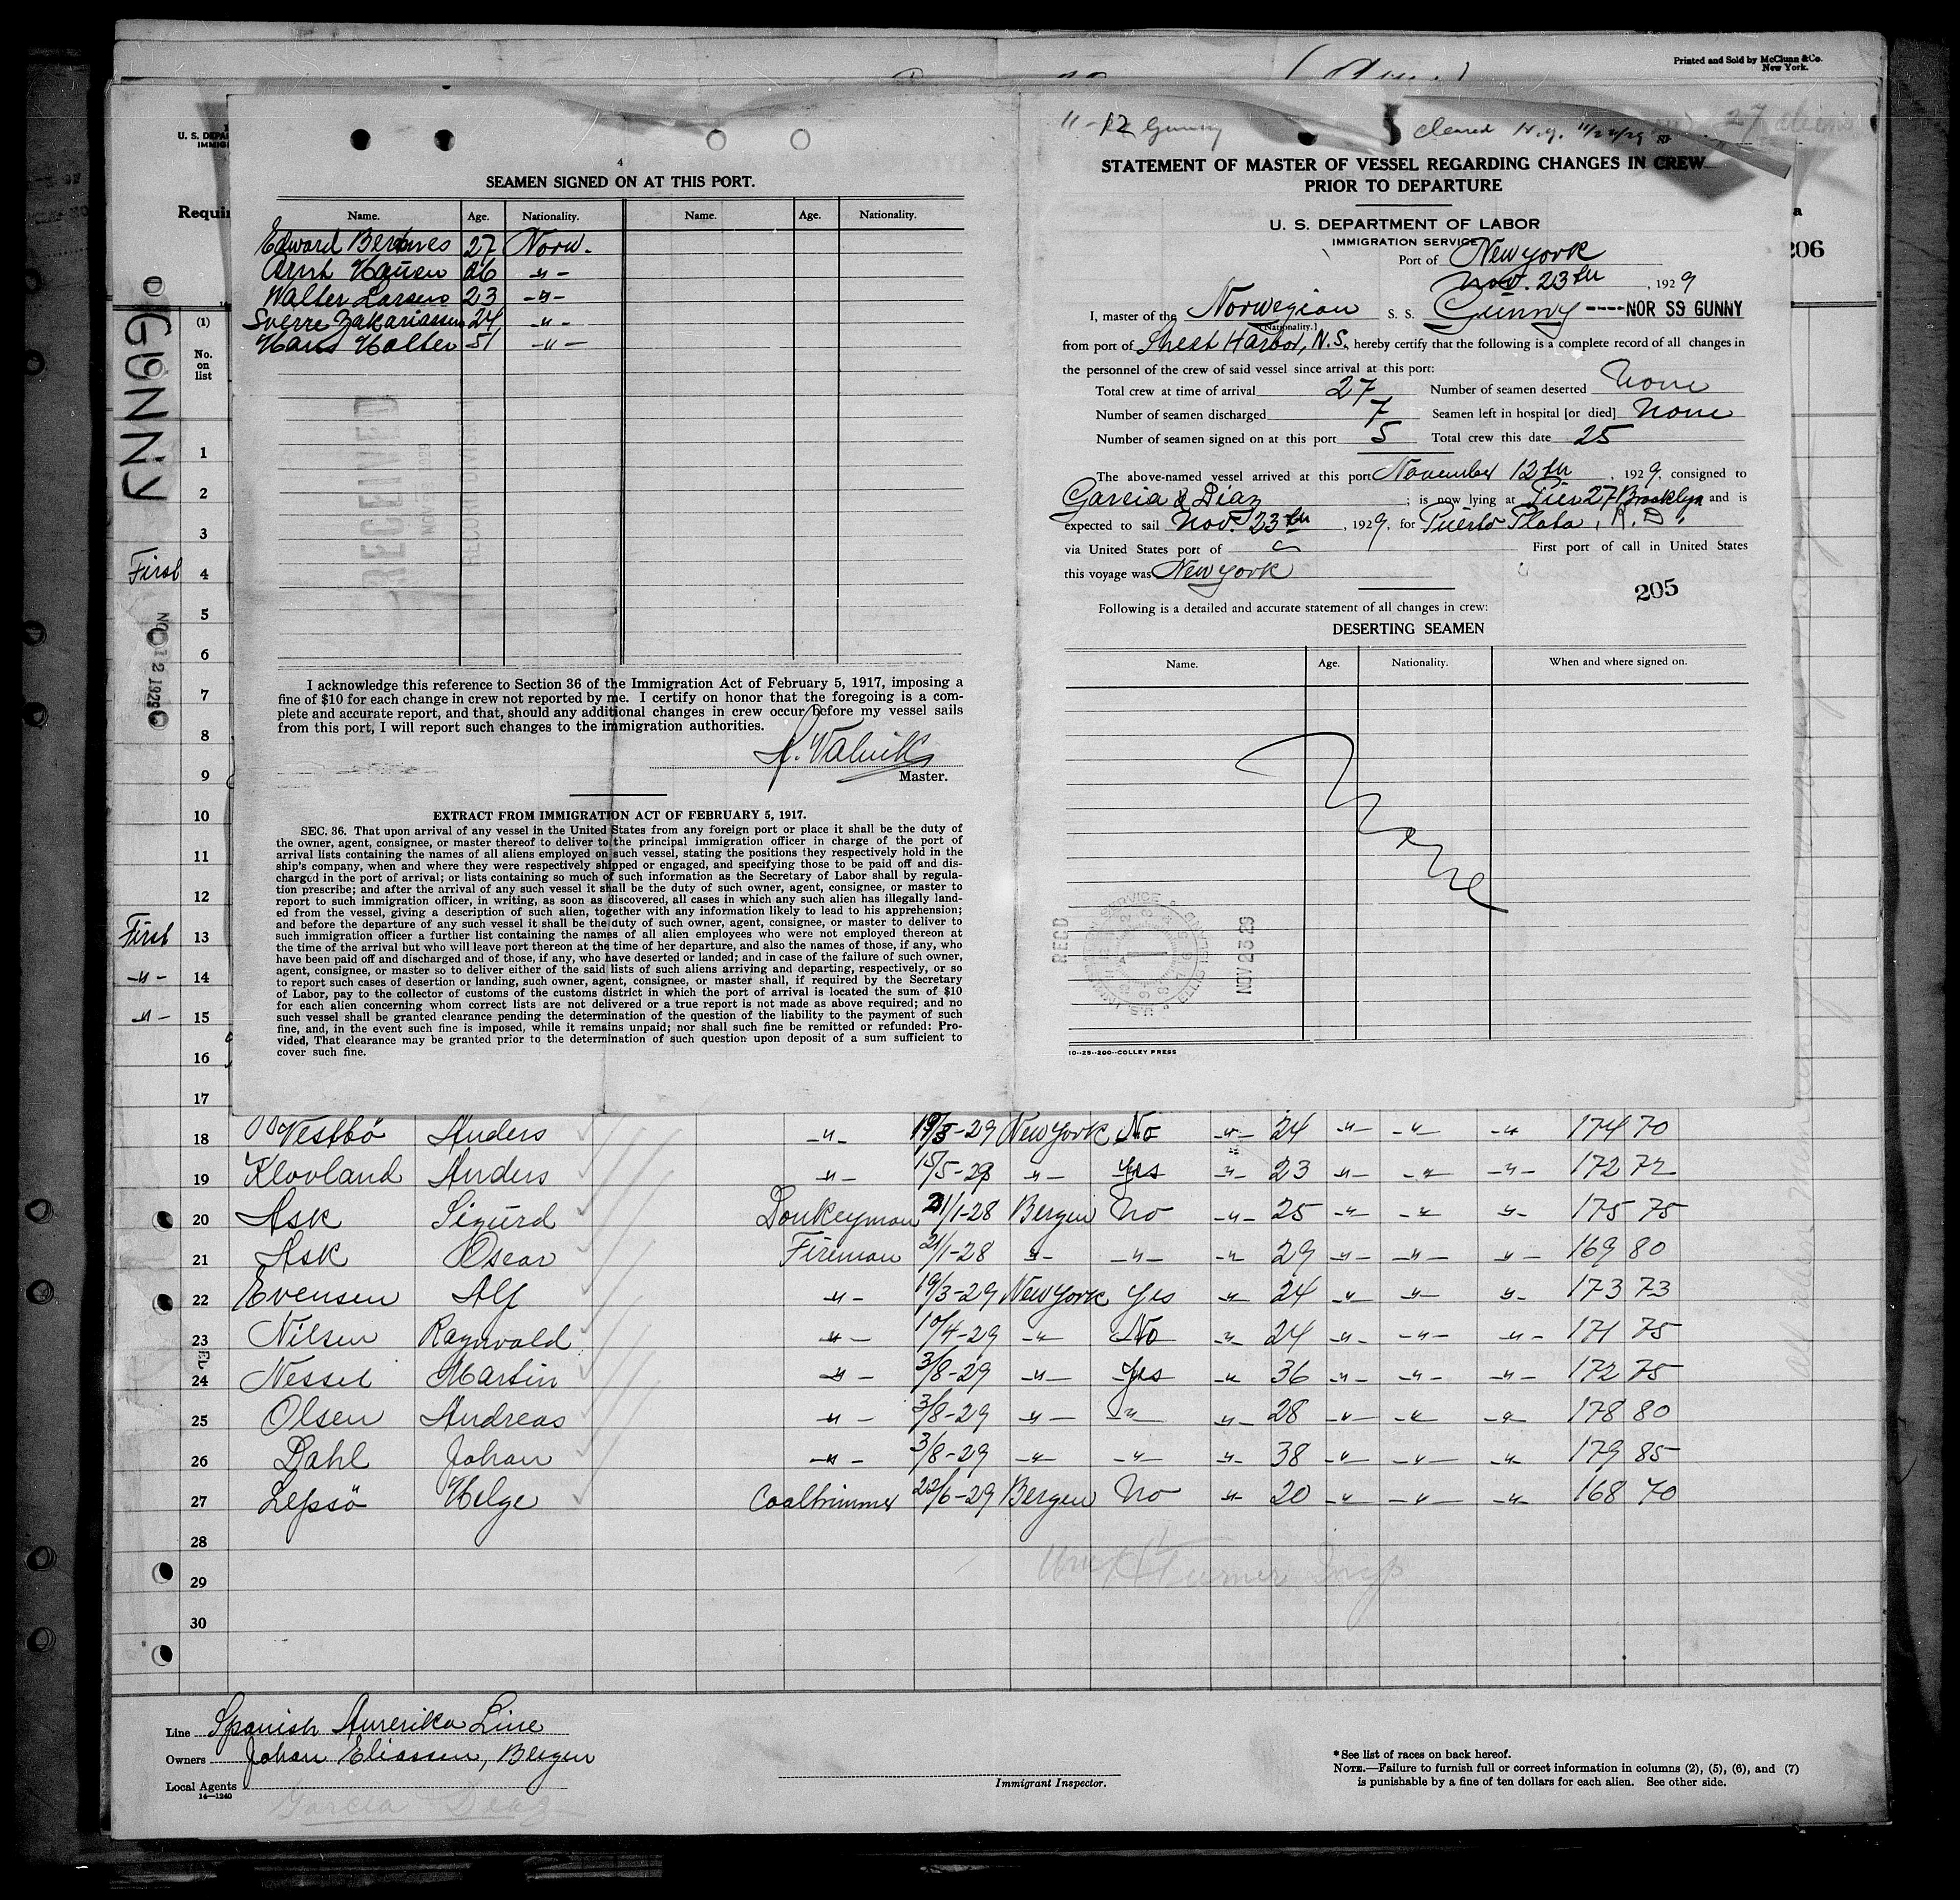 Printed and Sold by McClunn & Co.
New York.
4
SEAMEN SIGNED ON AT THIS PORT.
Name. Age. Nationality. Name. Age. Nationality.
Edward 27 Norw.
Arnt Hansen 26 -"-
Walter Larsens 23 -"-
Sverre Zakariassen 24 -"-
Hans Halter 51 -"-
RECEIVED
I acknowledge this reference to Section 36 of the Immigration Act of February 5, 1917, imposing a
fine of $10 for each change in crew not reported by me. I certify on honor that the foregoing is a com-
plete and accurate report, and that, should any additional changes in crew occur before my vessel sails
from this port, I will report such changes to the immigration authorities.
Master.
EXTRACT FROM IMMIGRATION ACT OF FEBRUARY 5, 1917.
SEC. 36. That upon arrival of any vessel in the United States from any foreign port or place it shall be the duty of
the owner, agent, consignee, or master thereof to deliver to the principal immigration officer in charge of the port of
arrival lists containing the names of all aliens employed on such vessel, stating the positions they respectively hold in the
ship's company, when and where they were respectively shipped or engaged, and specifying those to be paid off and dis-
charged in the port of arrival; or lists containing so much of such information as the Secretary of Labor shall by regula-
tion prescribe; and after the arrival of any such vessel it shall be the duty of such owner, agent, consignee, or master to
report to such immigration officer, in writing, as soon as discovered, all cases in which any such alien has illegally land-
ed from the vessel, giving a description of such alien, together with any information likely to lead to his apprehension;
and before the departure of any such vessel it shall be the duty of such owner, agent, consignee, or master to deliver to
such immigration officer a further list containing the names of all alien employees who were not employed thereon at
the time of the arrival but who will leave port thereon at the time of her departure, and also the names of those, if any, who
have been paid off and discharged and of those, if any, who have deserted or landed; and in case of the failure of such owner,
agent, consignee, or master so to deliver either of the said lists of such aliens arriving and departing, respectively, or so
to report such cases of desertion or landing, such owner, agent, consignee, or master shall, if required by the Secretary
of Labor, pay to the collector of customs of the customs district in which the port of arrival is located the sum of $10
for each alien concerning whom correct lists are not delivered or a true report is not made as above required; and no
such vessel shall be granted clearance pending the determination of the question of the liability to the payment of such
fine, and, in the event such fine is imposed, while it remains unpaid; nor shall such fine be remitted or refunded: Pro-
vided, That clearance may be granted prior to the determination of such question upon deposit of a sum sufficient to
cover such fine.
11-12 Gunny
cleared N.Y. 11/22/29
27 aliens
STATEMENT OF MASTER OF VESSEL REGARDING CHANGES IN CREW
PRIOR TO DEPARTURE
U. S. DEPARTMENT OF LABOR
IMMIGRATION SERVICE
Port of New York
Nov. 23th, 1929
I, master of the Norwegian S. S. Gunny ----NOR SS GUNNY
(Nationality.)
from port of Sheet Harbor, N.S., hereby certify that the following is a complete record of all changes in
the personnel of the crew of said vessel since arrival at this port:
Total crew at time of arrival 27 Number of seamen deserted None
Number of seamen discharged 7 Seamen left in hospital [or died] None
Number of seamen signed on at this port 5 Total crew this date 25
The above-named vessel arrived at this port November 12th, 1929, consigned to
Garcia & Diaz; is now lying at Pier 27 Brooklyn and is
expected to sail Nov. 23th, 1929, for Puerto Plata, R.D.
via United States port of First port of call in United States
this voyage was New York
205
Following is a detailed and accurate statement of all changes in crew:
DESERTING SEAMEN
Name. Age. Nationality. When and where signed on.
None
RECD
NOV 23 29
10--25--200--COLLEY PRESS
206
U. S. DEPA
IMMIG
Requir
GUNNY
NOV 12 1929
(1)
No.
on
list
1
2
3
First 4
5
6
7
8
9
10
11
12
First 13
-"- 14
-"- 15
16
17
18 Vestbö Anders -"- 19/3-29 New York No -"- 24 -"- -"- -"- 174 70
19 Klovland Anders -"- 15/5-29 -"- Yes -"- 23 -"- -"- -"- 172 72
20 Ask Sigurd Donkeyman 21/1-28 Bergen No -"- 25 -"- -"- -"- 175 75
21 Ask Oscar Fireman 21/1-28 -"- -"- -"- 29 -"- -"- -"- 169 80
22 Evensen Alf -"- 19/3-29 New York Yes -"- 24 -"- -"- -"- 173 73
23 Nilsen Ragnvald -"- 10/4-29 -"- No -"- 24 -"- -"- -"- 171 75
24 Nessel Martin -"- 3/8-29 -"- Yes -"- 36 -"- -"- -"- 172 75
25 Olsen Andreas -"- 3/8-29 -"- -"- -"- 28 -"- -"- -"- 178 80
26 Dahl Johan -"- 3/8-29 -"- -"- -"- 38 -"- -"- -"- 179 85
27 Lepsö Helge Coaltrimmer 22/6-29 Bergen No -"- 20 -"- -"- -"- 168 70
28
29
30
Line Spanish Amerika Line
Owners Johan Eliassen, Bergen
Local Agents
14-1240
Garcia Diaz
Immigrant Inspector.
*See list of races on back hereof.
NOTE.—Failure to furnish full or correct information in columns (2), (5), (6), and (7)
is punishable by a fine of ten dollars for each alien. See other side.